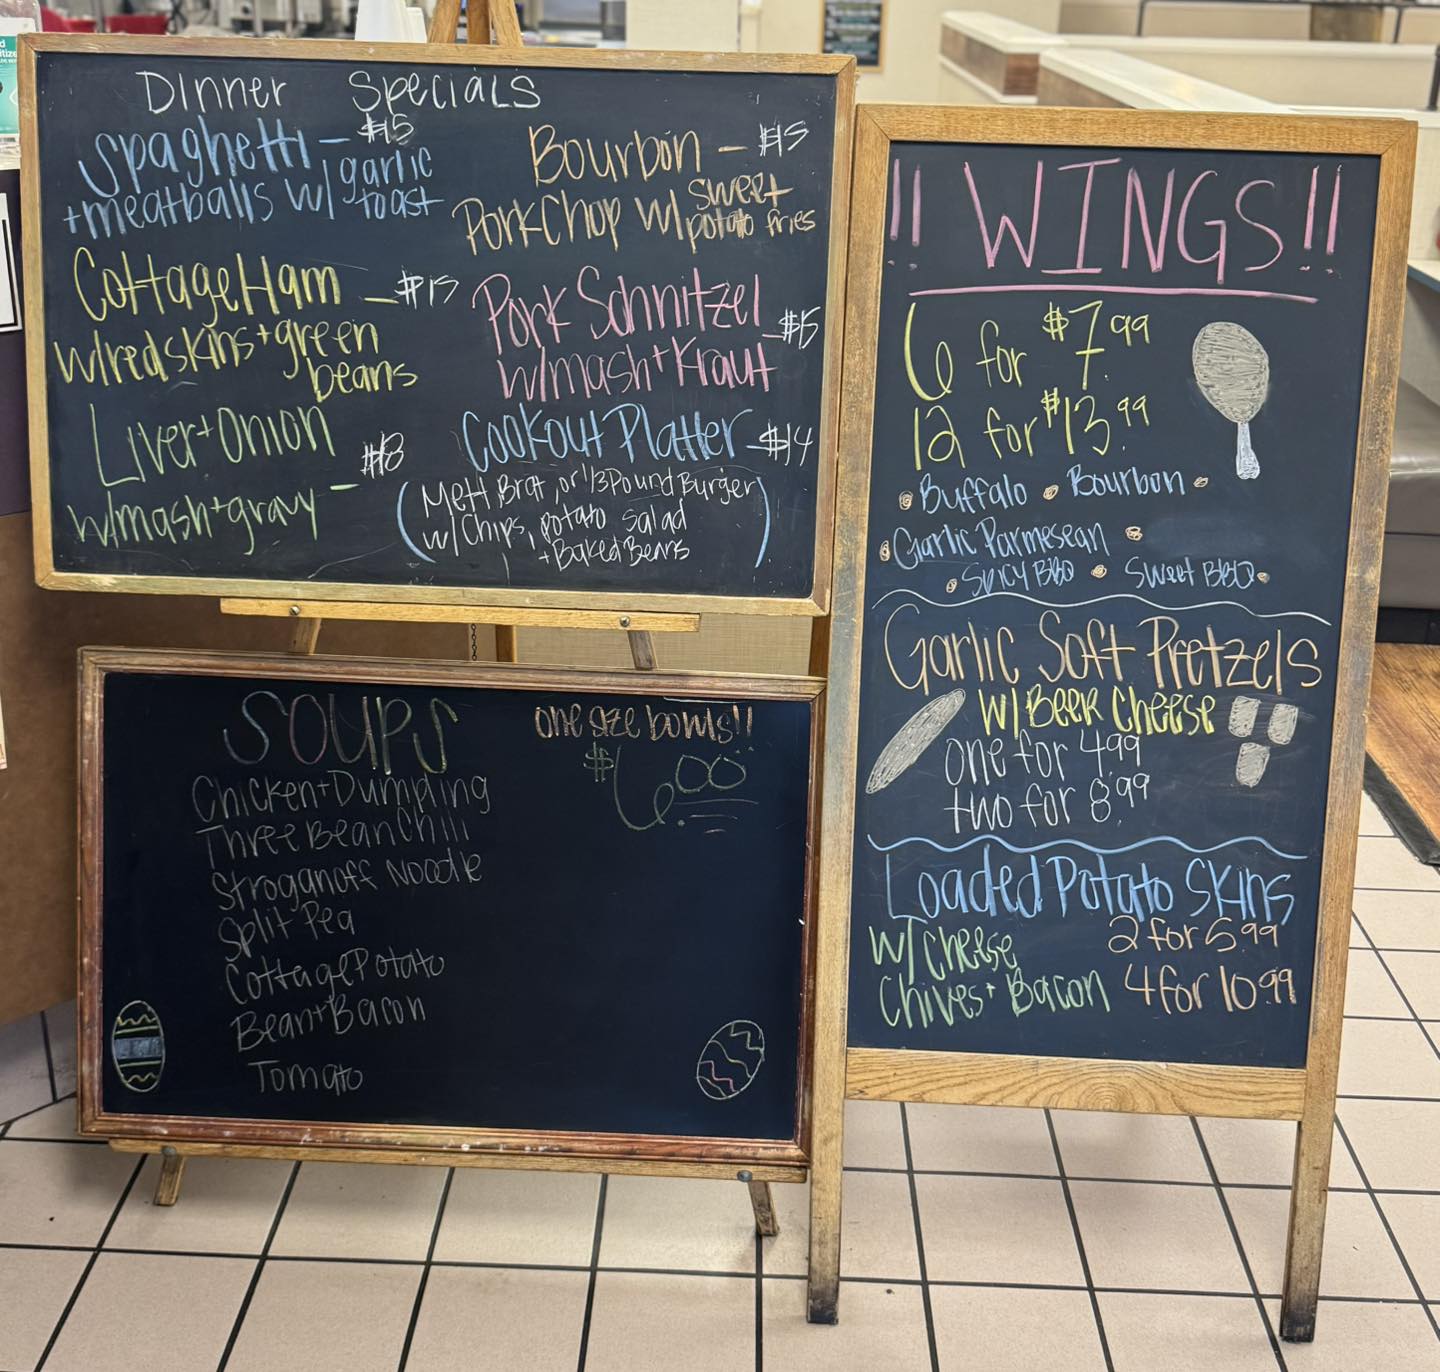 Dinner Specials
Spaghetti - $15
+meatballs w/ garlic toast
Bourbon - $15
Pork Chop w/ sweet potato fries
Cottage Ham - $15
w/redskins + green
beans
Pork Schnitzel
w/mash + Kraut - $15
Liver + Onion
w/mash + gravy - $13
Cookout Platter - $14
(Mett, Brat, or 1/3 Pound Burger
w/ Chips, potato salad
+ Baked Beans)
SOUPS
one size bowls!!
$6.00
Chicken + Dumpling
Three Bean Chili
Stroganoff Noodle
Split Pea
Cottage Potato
Bean + Bacon
Tomato
!! WINGS !!
6 for $7.99
12 for $13.99
Buffalo • Bourbon
Garlic Parmesean
Spicy BBQ • Sweet BBQ
Garlic Soft Pretzels
w/ Beer Cheese
one for 4.99
two for 8.99
Loaded Potato Skins
w/ cheese
Chives + Bacon
2 for 5.99
4 for 10.99